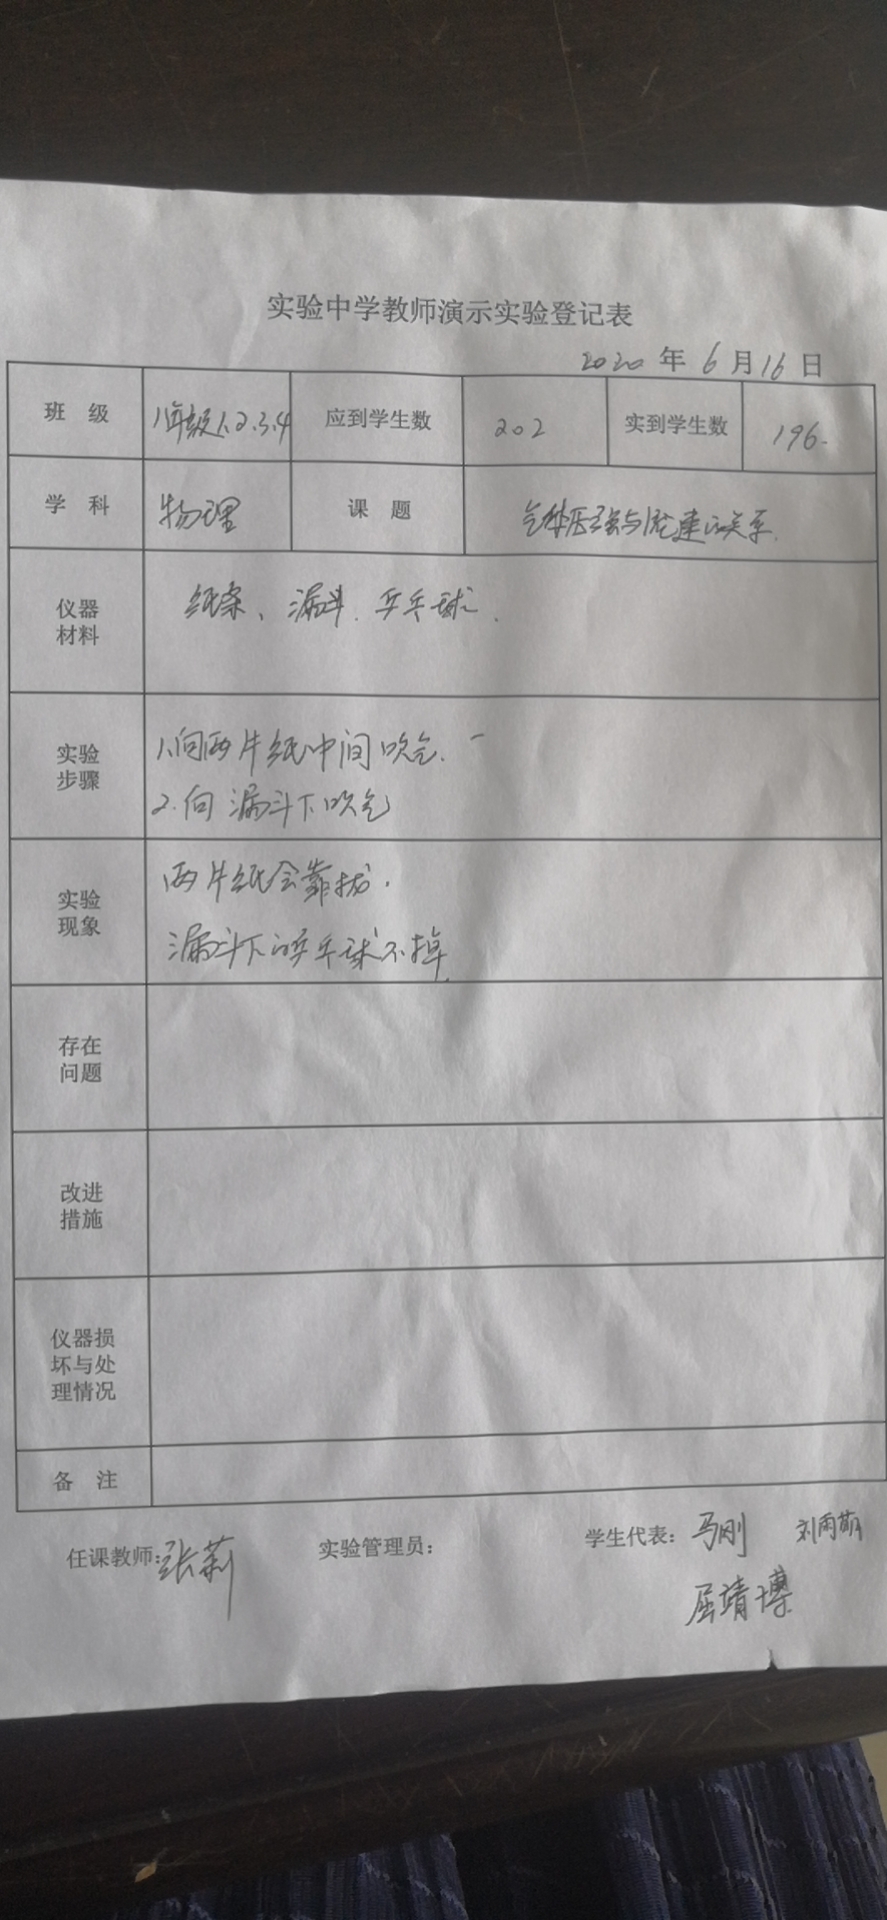 实验中学教师演示实验登记表
2020 年 6 月 16 日
班 级 八年级1.2.3.4 应到学生数 202 实到学生数 196.
学 科 物理 课 题 气体压强与流速的关系.
仪器
材料
纸条、漏斗、乒乓球.
实验
步骤
1.向两片纸中间吹气.
2.向漏斗下吹气
实验
现象
两片纸会靠拢.
漏斗下的乒乓球不掉.
存在
问题
改进
措施
仪器损
坏与处
理情况
备 注
任课教师:张莉 实验管理员: 学生代表: 马刚 刘雨
屈靖博